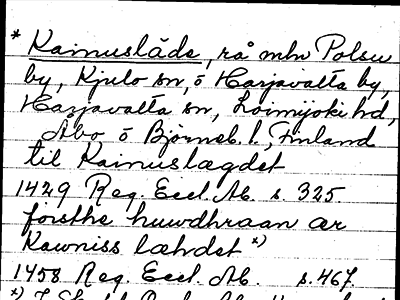 * Kainuslåde, rå mln Polsu
by, Kjulo sn, ö Harjavalta by,
Harjavalta sn, Loimijoki hd,
Åbo o Björneb. l., Finland
til Kainuslægdet
1429 Reg. Eccl. Ab. s. 325.
försthe huwdhraan ær
Kawniss læhdet *)
1458 Reg. Eccl. Ab. s. 467.